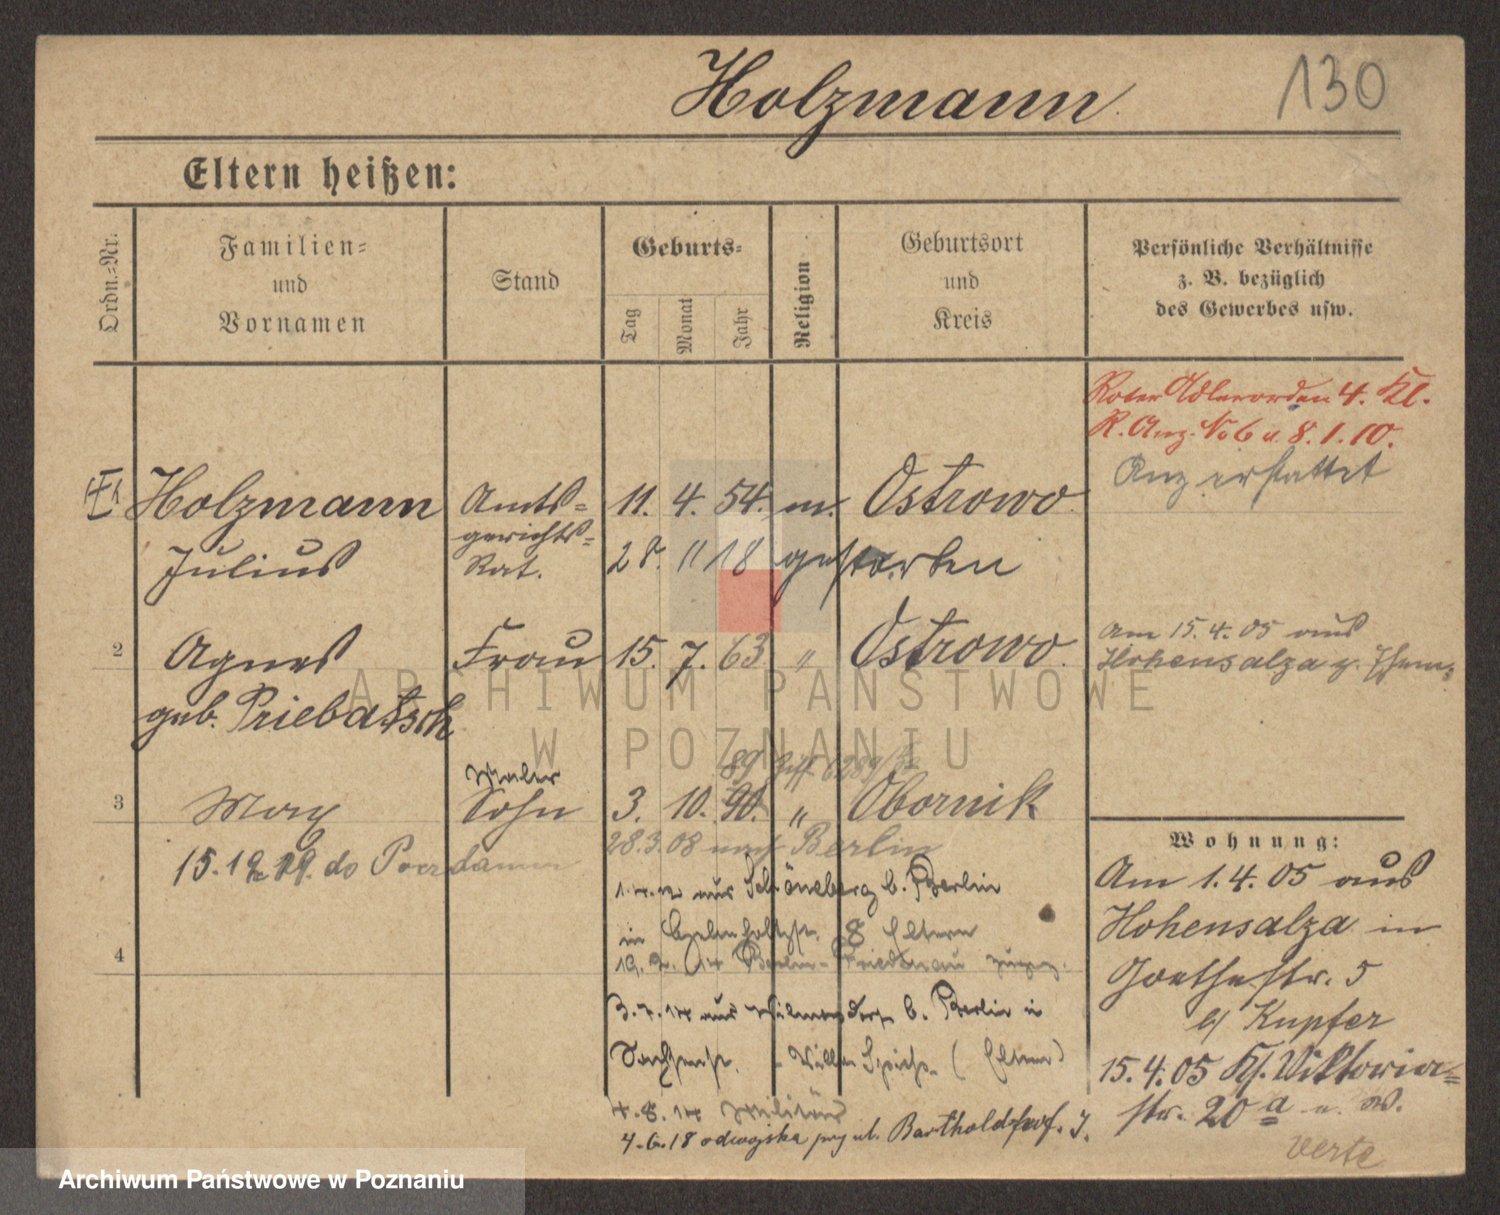 Holzmann
130
Eltern heißen:
Ordn.-Nr.
Familien-
und
Vornamen
Stand
Geburts-
Tag
Monat
Jahr
Religion
Geburtsort
und
Kreis
Persönliche Verhältnisse
z. B. bezüglich
des Gewerbes usw.
Roter Adlerorden 4. Kl.
R. Anz. No 6 v. 8.1.10.
Anz erstattet
Holzmann Amts- 11. 4. 54. m. Ostrowo
gerichts-
Julius Rat. 28. 11 18 gestorben
2 Agnes Frau 15. 7. 63 " Ostrowo.
geb. Priebatsch
am 15.4.05 aus
Hohensalza z.
ARCHIWUM PAŃSTWOWE
W POZNANIU
89
Maler
3 Max Sohn 3. 10. 90. " Obornik
28.3.08 nach Berlin
15.12.19. do
aus Schöneberg b. Berlin
in 8 Eltern
4
19. 2. 14 Berlin-Friedenau
3.7.14 aus Wilmersdorf b. Berlin in
(Eltern)
4.8.14 Militär
4.6.18 odwojska ul. Bartholdshof.
Wohnung:
Am 1.4.05 aus
Hohensalza in
Goethestr. 5
b/ Kupfer
15.4.05 Viktoria-
str. 20a
verte
Archiwum Państwowe w Poznaniu